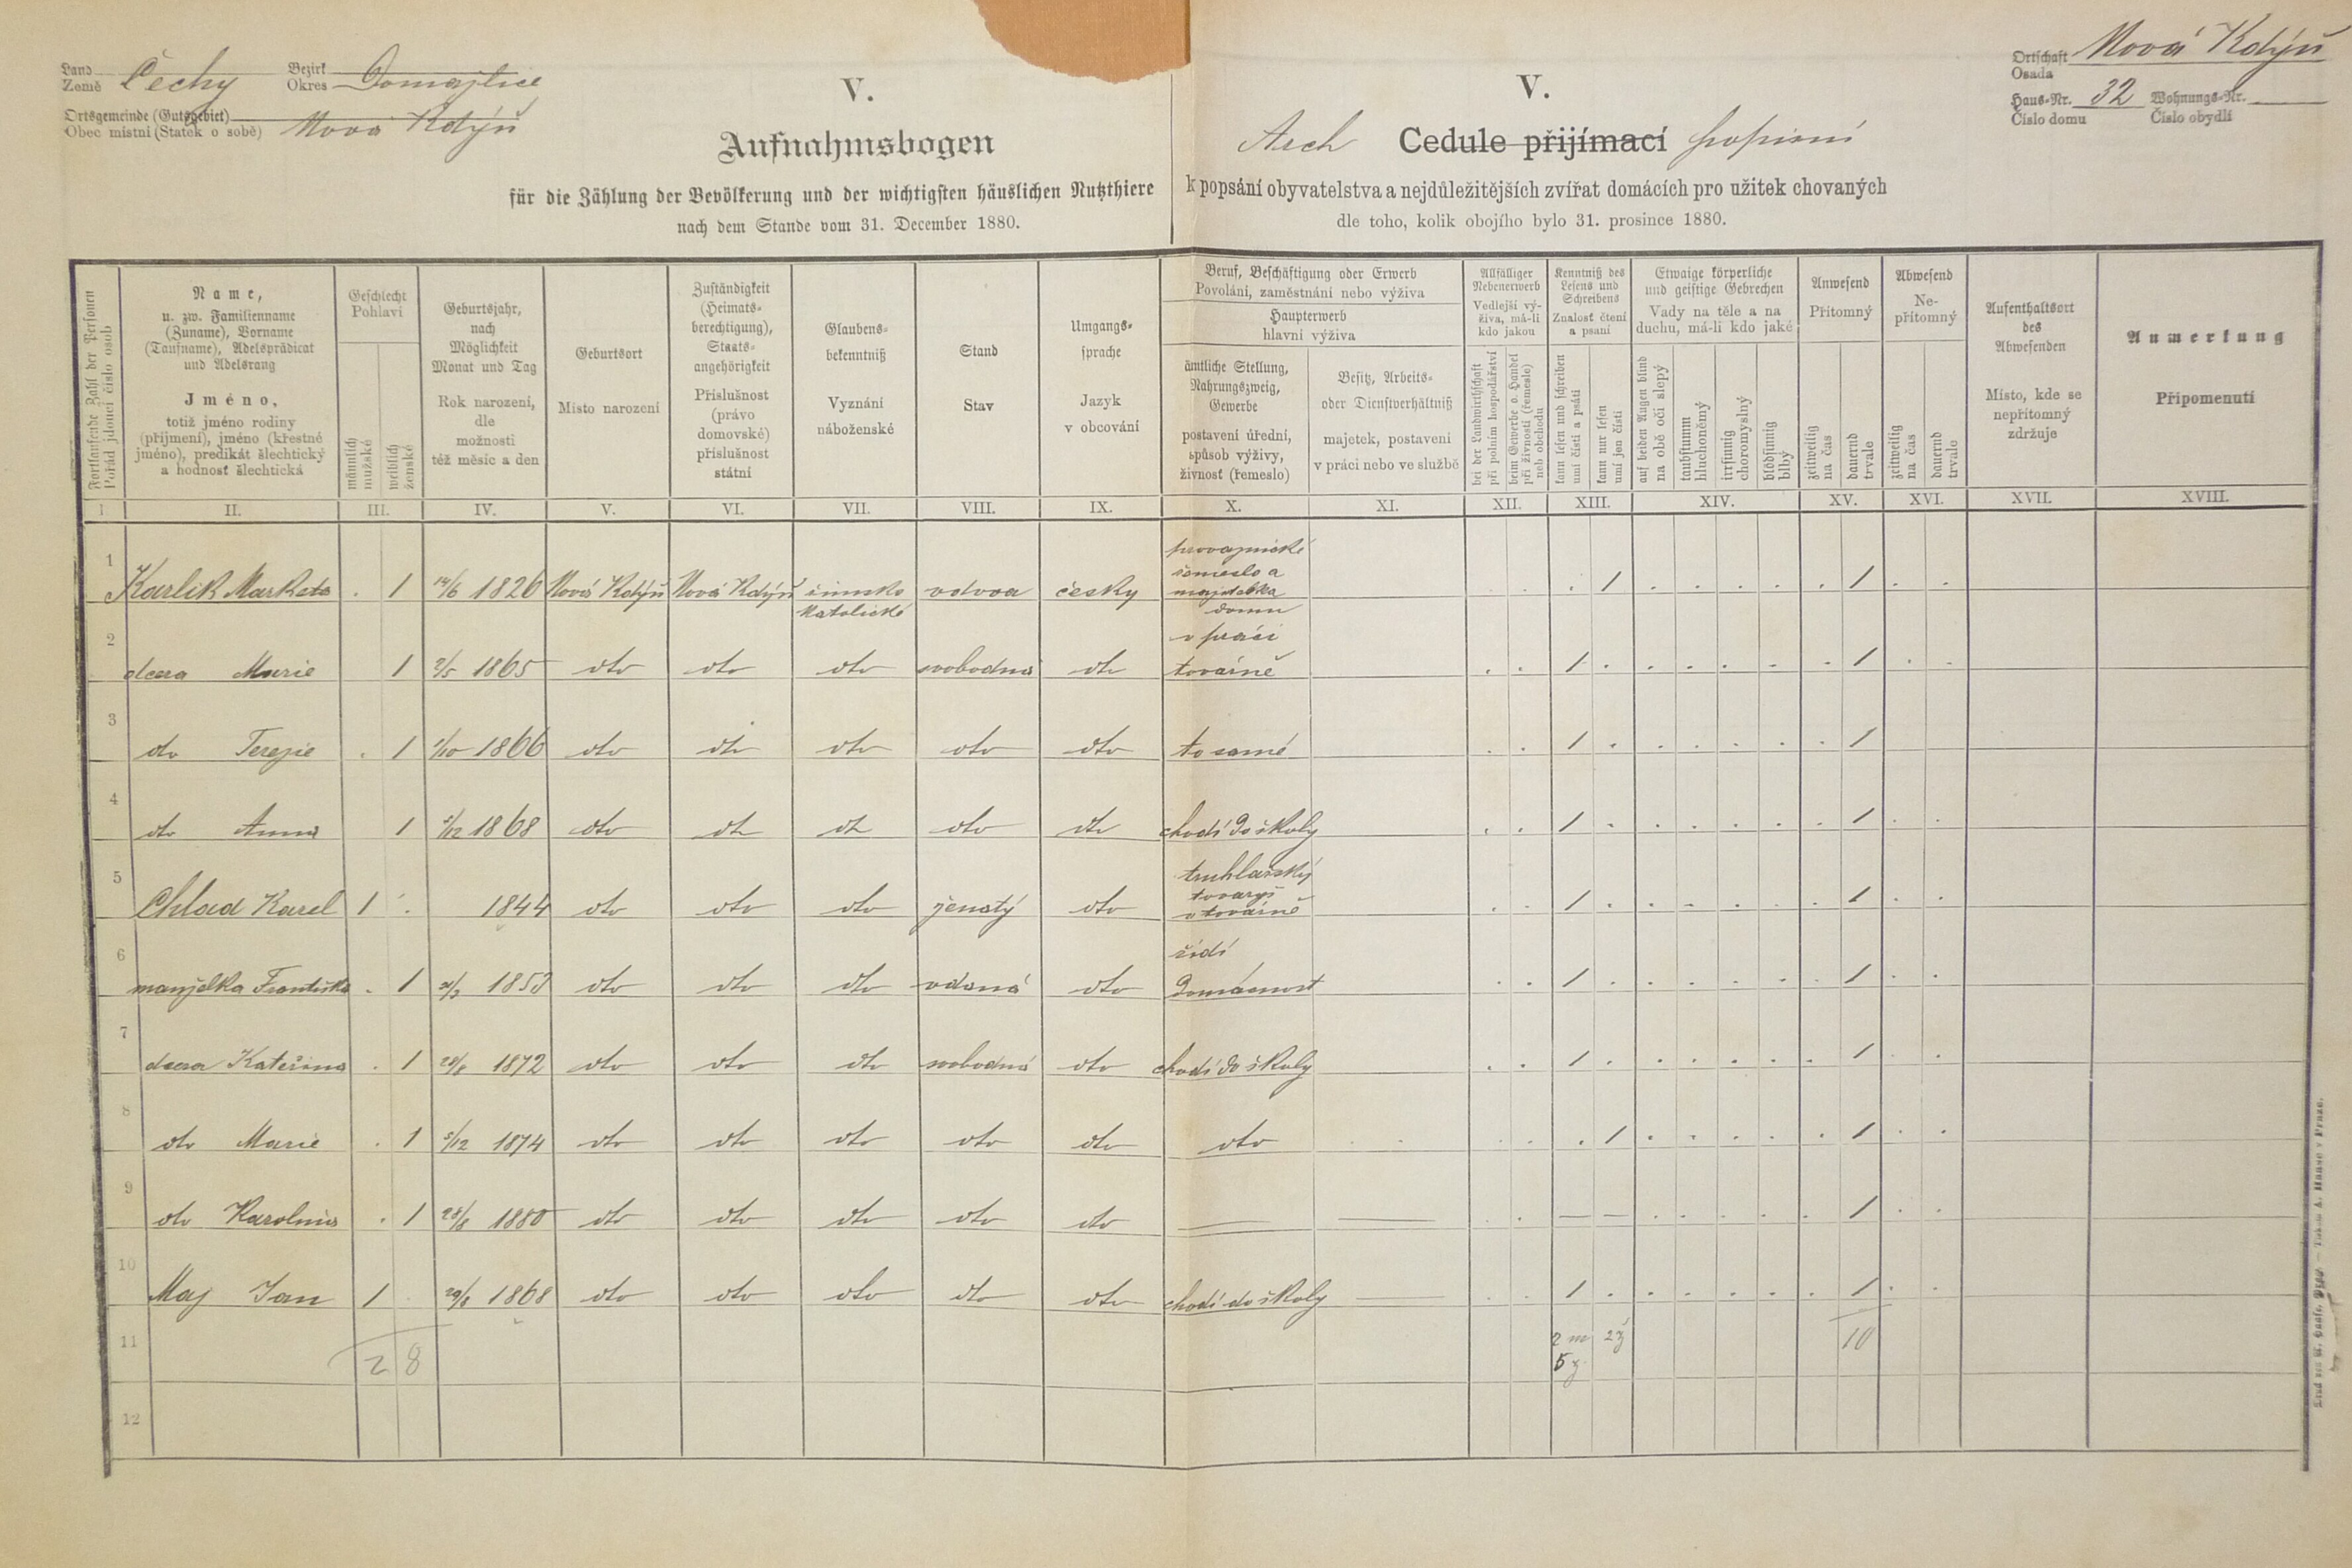 Land
Země Čechy
Bezirk
Okres Domažlice
Ortsgemeinde (Gutsgebiet)
Obec místní (Statek o sobě) Nová Kdýň
V.
Aufnahmsbogen
für die Zählung der Bevölkerung und der wichtigsten häuslichen Nutzthiere
nach dem Stande vom 31. December 1880.
V.
Arch Cedule přijímací popisní
k popsání obyvatelstva a nejdůležitějších zvířat domácích pro užitek chovaných
dle toho, kolik obojího bylo 31. prosince 1880.
Ortschaft
Osada Nová Kdýň
Haus-Nr. 32 Wohnungs-Nr.
Číslo domu Číslo obydlí
Fortlaufende Zahl der Personen
Pořád jdoucí číslo osob
Name,
u. zw. Familienname
(Zuname), Vorname
(Taufname), Adelsprädicat
und Adelsrang
Jméno,
totiž jméno rodiny
(příjmení), jméno (křestné
jméno), predikát šlechtický
a hodnosť šlechtická
Geschlecht
Pohlaví
männlich
mužské
weiblich
ženské
Geburtsjahr,
nach
Möglichkeit
Monat und Tag
Rok narození,
dle
možnosti
též měsíc a den
Geburtsort
Místo narození
Zuständigkeit
(Heimats-
berechtigung),
Staats-
angehörigkeit
Příslušnost
(právo
domovské)
příslušnost
státní
Glaubens-
bekenntniß
Vyznání
náboženské
Stand
Stav
Umgangs-
sprache
Jazyk
v obcování
Beruf, Beschäftigung oder Erwerb
Povolání, zaměstnání nebo výživa
Haupterwerb
hlavní výživa
ämtliche Stellung,
Nahrungszweig,
Gewerbe
postavení úřední,
spůsob výživy,
živnosť (řemeslo)
Besitz, Arbeits-
oder Dienstverhältniß
majetek, postavení
v práci nebo ve službě
Allfälliger
Nebenerwerb
Vedlejší vý-
živa, má-li
kdo jakou
bei der Landwirthschaft
při polním hospodářství
beim Gewerbe o. Handel
při živnosti (řemesle)
neb obchodu
Kenntniß des
Lesens und
Schreibens
Znalosť čtení
a psaní
kann lesen und schreiben
umí čísti a psáti
kann nur lesen
umí jen čísti
Etwaige körperliche
und geistige Gebrechen
Vady na těle a na
duchu, má-li kdo jaké
auf beiden Augen blind
na obě oči slepý
taubstumm
hluchoněmý
irrsinnig
choromyslný
blödsinnig
blbý
Anwesend
Přítomný
zeitweilig
na čas
dauernd
trvale
Abwesend
Ne-
přítomný
zeitweilig
na čas
dauernd
trvale
Aufenthaltsort
des
Abwesenden
Místo, kde se
nepřítomný
zdržuje
Anmerkung
Připomenutí
I II. III. IV. V. VI. VII. VIII. IX. X. XI. XII. XIII. XIV. XV. XVI. XVII. XVIII.
1 Karlik Marketa . 1 14/6 1826 Nová Kdýň Nová Kdýň římsko katolické vdova česky provaznické řemeslo a majitelka domu 1 1
2 dcera Marie 1 2/5 1865 dto dto dto svobodná dto v práci továrně 1 1
3 dto Terezie . 1 1/10 1866 dto dto dto dto dto to samé 1 1
4 dto Anna 1 5/12 1868 dto dto dto dto dto chodí do školy 1 1
5 Chlad Karel 1 . 1844 dto dto dto ženatý dto truhlářský tovaryš v továrně 1 1
6 manželka Františka . 1 1853 dto dto dto vdaná dto řídí domácnost 1 1
7 dcera Kateřina . 1 28/8 1872 dto dto dto svobodná dto chodí do školy 1 1
8 dto Marie . 1 5/12 1874 dto dto dto dto dto dto 1 1
9 dto Karolina . 1 28/8 1880 dto dto dto dto dto — — — — 1
10 Maj Jan 1 . 29/8 1868 dto dto dto dto dto chodí do školy — 1 1
11 2 8 2 m 2 ž 10
5 ž
12